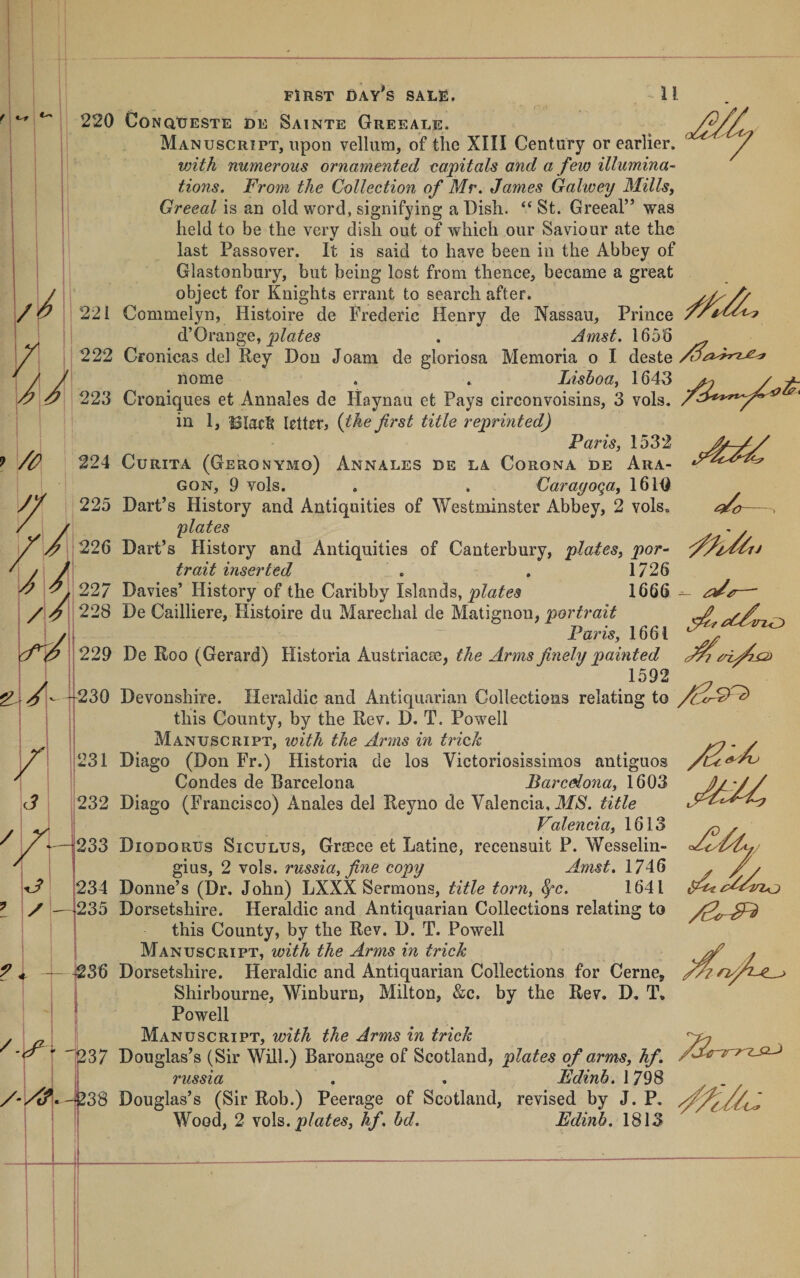 FIRST DAY'S SALE. 11
220 CONQUESTE DE SAINTE GREEALE.
MANUSCRIPT, upon vellum, of the XIII Century or earlier.
with numerous ornamented capitals and a few illumina-
tions. From the Collection of Mr. James Galwey Mills,
Greeal is an old word, signifying a Dish. “St. Greeal” was
held to be the very dish out of which our Saviour ate the
last Passover. It is said to have been in the Abbey of
Glastonbury, but being lost from thence, became a great
object for Knights errant to search after.
221 Commelyn, Histoire de Frederic Henry de Nassau, Prince
d'Orange, plates . Amst. 1656
222 Cronicas del Rey Don Joam de gloriosa Memoria o I deste
nome . . Lisboa, 1643
223 Croniques et Annales de Haynau et Pays circonvoisins, 3 vols.
in 1, Black letter, (the first title reprinted)
Paris, 1532
224 CURITA (GERONYMO) ANNALES DE LA CORONA DE ARA-
GON, 9 vols. . . Caragoça, 1610
225 Dart's History and Antiquities of Westminster Abbey, 2 vols.
plates
226 Dart's History and Antiquities of Canterbury, plates, por-
trait inserted . . 1726
227 Davies' History of the Caribby Islands, plates 1666
228 De Cailliere, Histoire du Marechal de Matignon, portrait
Paris, 1661
229 De Roo (Gerard) Historia Austriacæ, the Arms finely painted
1592
230 Devonshire. Heraldic and Antiquarian Collections relating to
this County, by the Rev. D. T. Powell
MANUSCRIPT, with the Arms in trick
231 Diago (Don Fr.) Historia de los Victoriosissimos antiguos
Condes de Barcelona Barcelona, 1603
232 Diago (Francisco) Anales del Reyno de Valencia, MS. title
Valencia, 1613
233 DIODORUS SICULUS, Græce et Latine, recensuit P. Wesselin-
gius, 2 vols. russia, fine copy Amst. 1746
234 Donne's (Dr. John) LXXX Sermons, title torn, &c. 1641
235 Dorsetshire. Heraldic and Antiquarian Collections relating to
this County, by the Rev. D. T. Powell
MANUSCRIPT, with the Arms in trick
236 Dorsetshire. Heraldic and Antiquarian Collections for Cerne,
Shirbourne, Winburn, Milton, &c. by the Rev. D. T.
Powell
MANUSCRIPT, with the Arms in trick
237 Douglas's (Sir Will.) Baronage of Scotland, plates of arms, hf.
russia . . Edinb. 1798
238 Douglas's (Sir Rob.) Peerage of Scotland, revised by J. P.
Wood, 2 vols. plates, hf. bd. Edinb. 1813